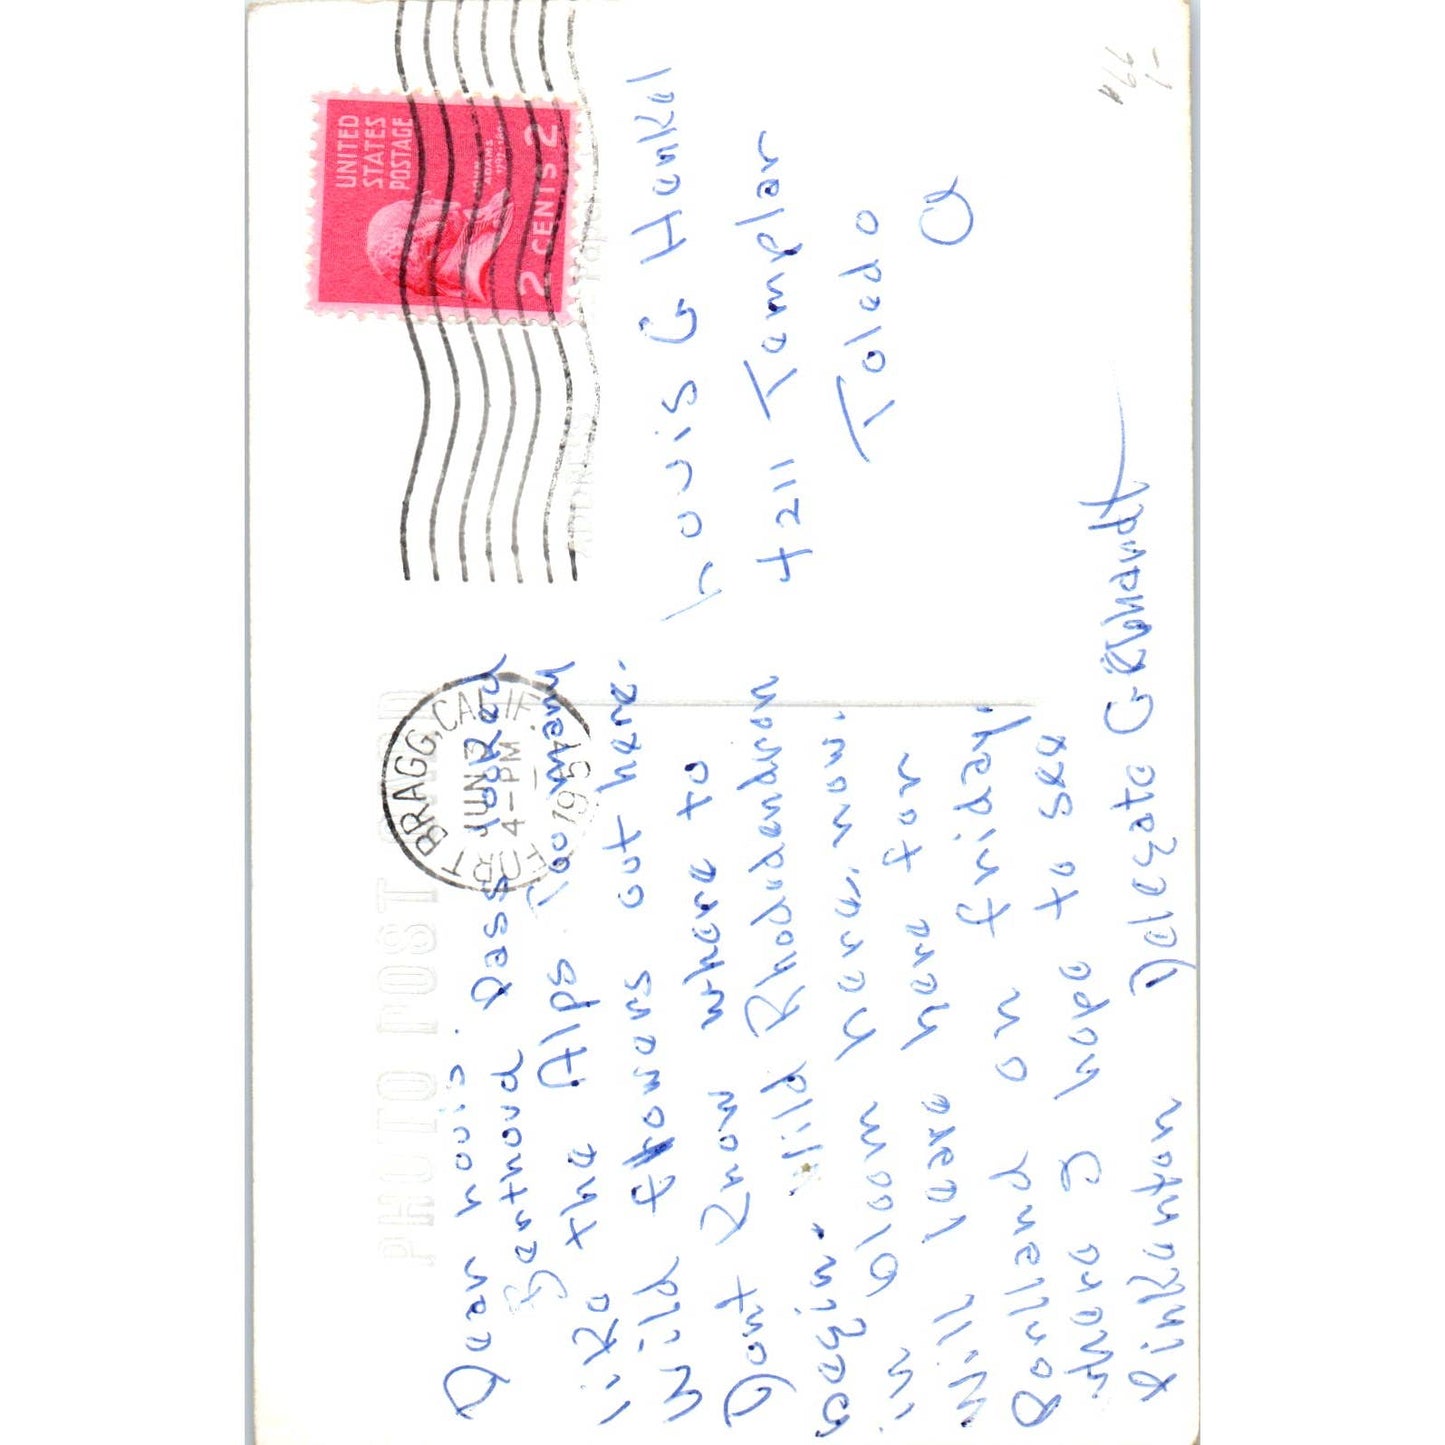 PHOTO POST CARD
FORT BRAGG, CALIF
JUN 3
4-PM
1951
UNITED
STATES
POSTAGE
JOHN
ADAMS
2 CENTS 2
ADDRESS
Dear Louis. Pass looked
Berthoud
like the Alps Too many
Wild flowers out here.
Dont Know where to
begin. Wild Rhododendron
in bloom here, now.
Will leave here for
Portland on friday.
where I hope to see
Pinkerton Delegate Gebhardt
Louis G Henkel
4211 Templar
Toledo
O